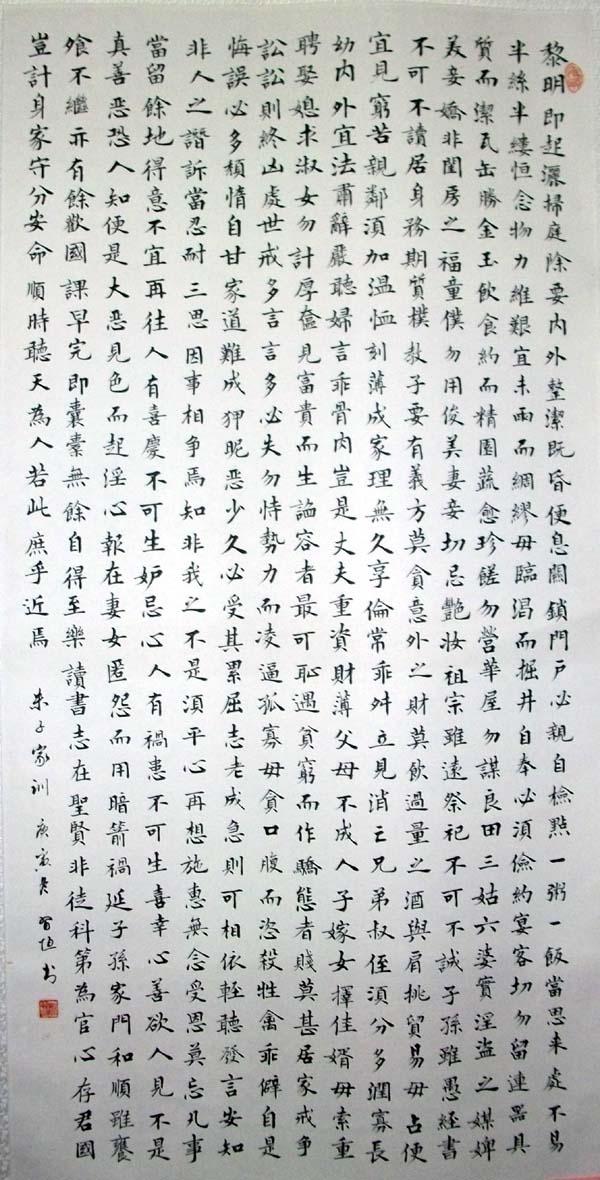 黎明即起灑掃庭除要內外整潔既昏便息關鎖門戶必親自檢點一粥一飯當思来處不易
半絲半縷恒念物力維艱宜未雨而綢繆毋臨渴而掘井自奉必須儉約宴客切勿留連器具
質而潔瓦缶勝金玉飲食約而精園蔬愈珍饈勿營華屋勿謀良田三姑六婆實淫盜之媒婢
美妾嬌非閨房之福童僕勿用俊美妻妾切忌艷妝祖宗雖遠祭祀不可不誠子孫雖愚經書
不可不讀居身務期質樸教子要有義方莫貪意外之財莫飲過量之酒與肩挑貿易毋占便
宜見窮苦親鄰須加溫恤刻薄成家理無久享倫常乖舛立見消亡兄弟叔侄須分多潤寡長
幼內外宜法肅辭嚴聽婦言乖骨肉豈是丈夫重資財薄父母不成人子嫁女擇佳婿毋索重
聘娶媳求淑女勿計厚奩見富貴而生諂容者最可恥遇貧窮而作驕態者賤莫甚居家戒爭
訟訟則終凶處世戒多言言多必失勿恃勢力而凌逼孤寡毋貪口腹而恣殺牲禽乖僻自是
悔誤必多頹惰自甘家道難成狎昵惡少久必受其累屈志老成急則可相依輕聽發言安知
非人之譖訴當忍耐三思因事相爭焉知非我之不是須平心再想施惠無念受恩莫忘凡事
當留餘地得意不宜再往人有喜慶不可生妒忌心人有禍患不可生喜幸心善欲人見不是
真善惡恐人知便是大惡見色而起淫心報在妻女匿怨而用暗箭禍延子孫家門和順雖饔
飧不繼亦有餘歡國課早完即囊橐無餘自得至樂讀書志在聖賢非徒科第為官心存君國
豈計身家守分安命順時聽天為人若此庶乎近焉
朱子家訓 庚寅 書